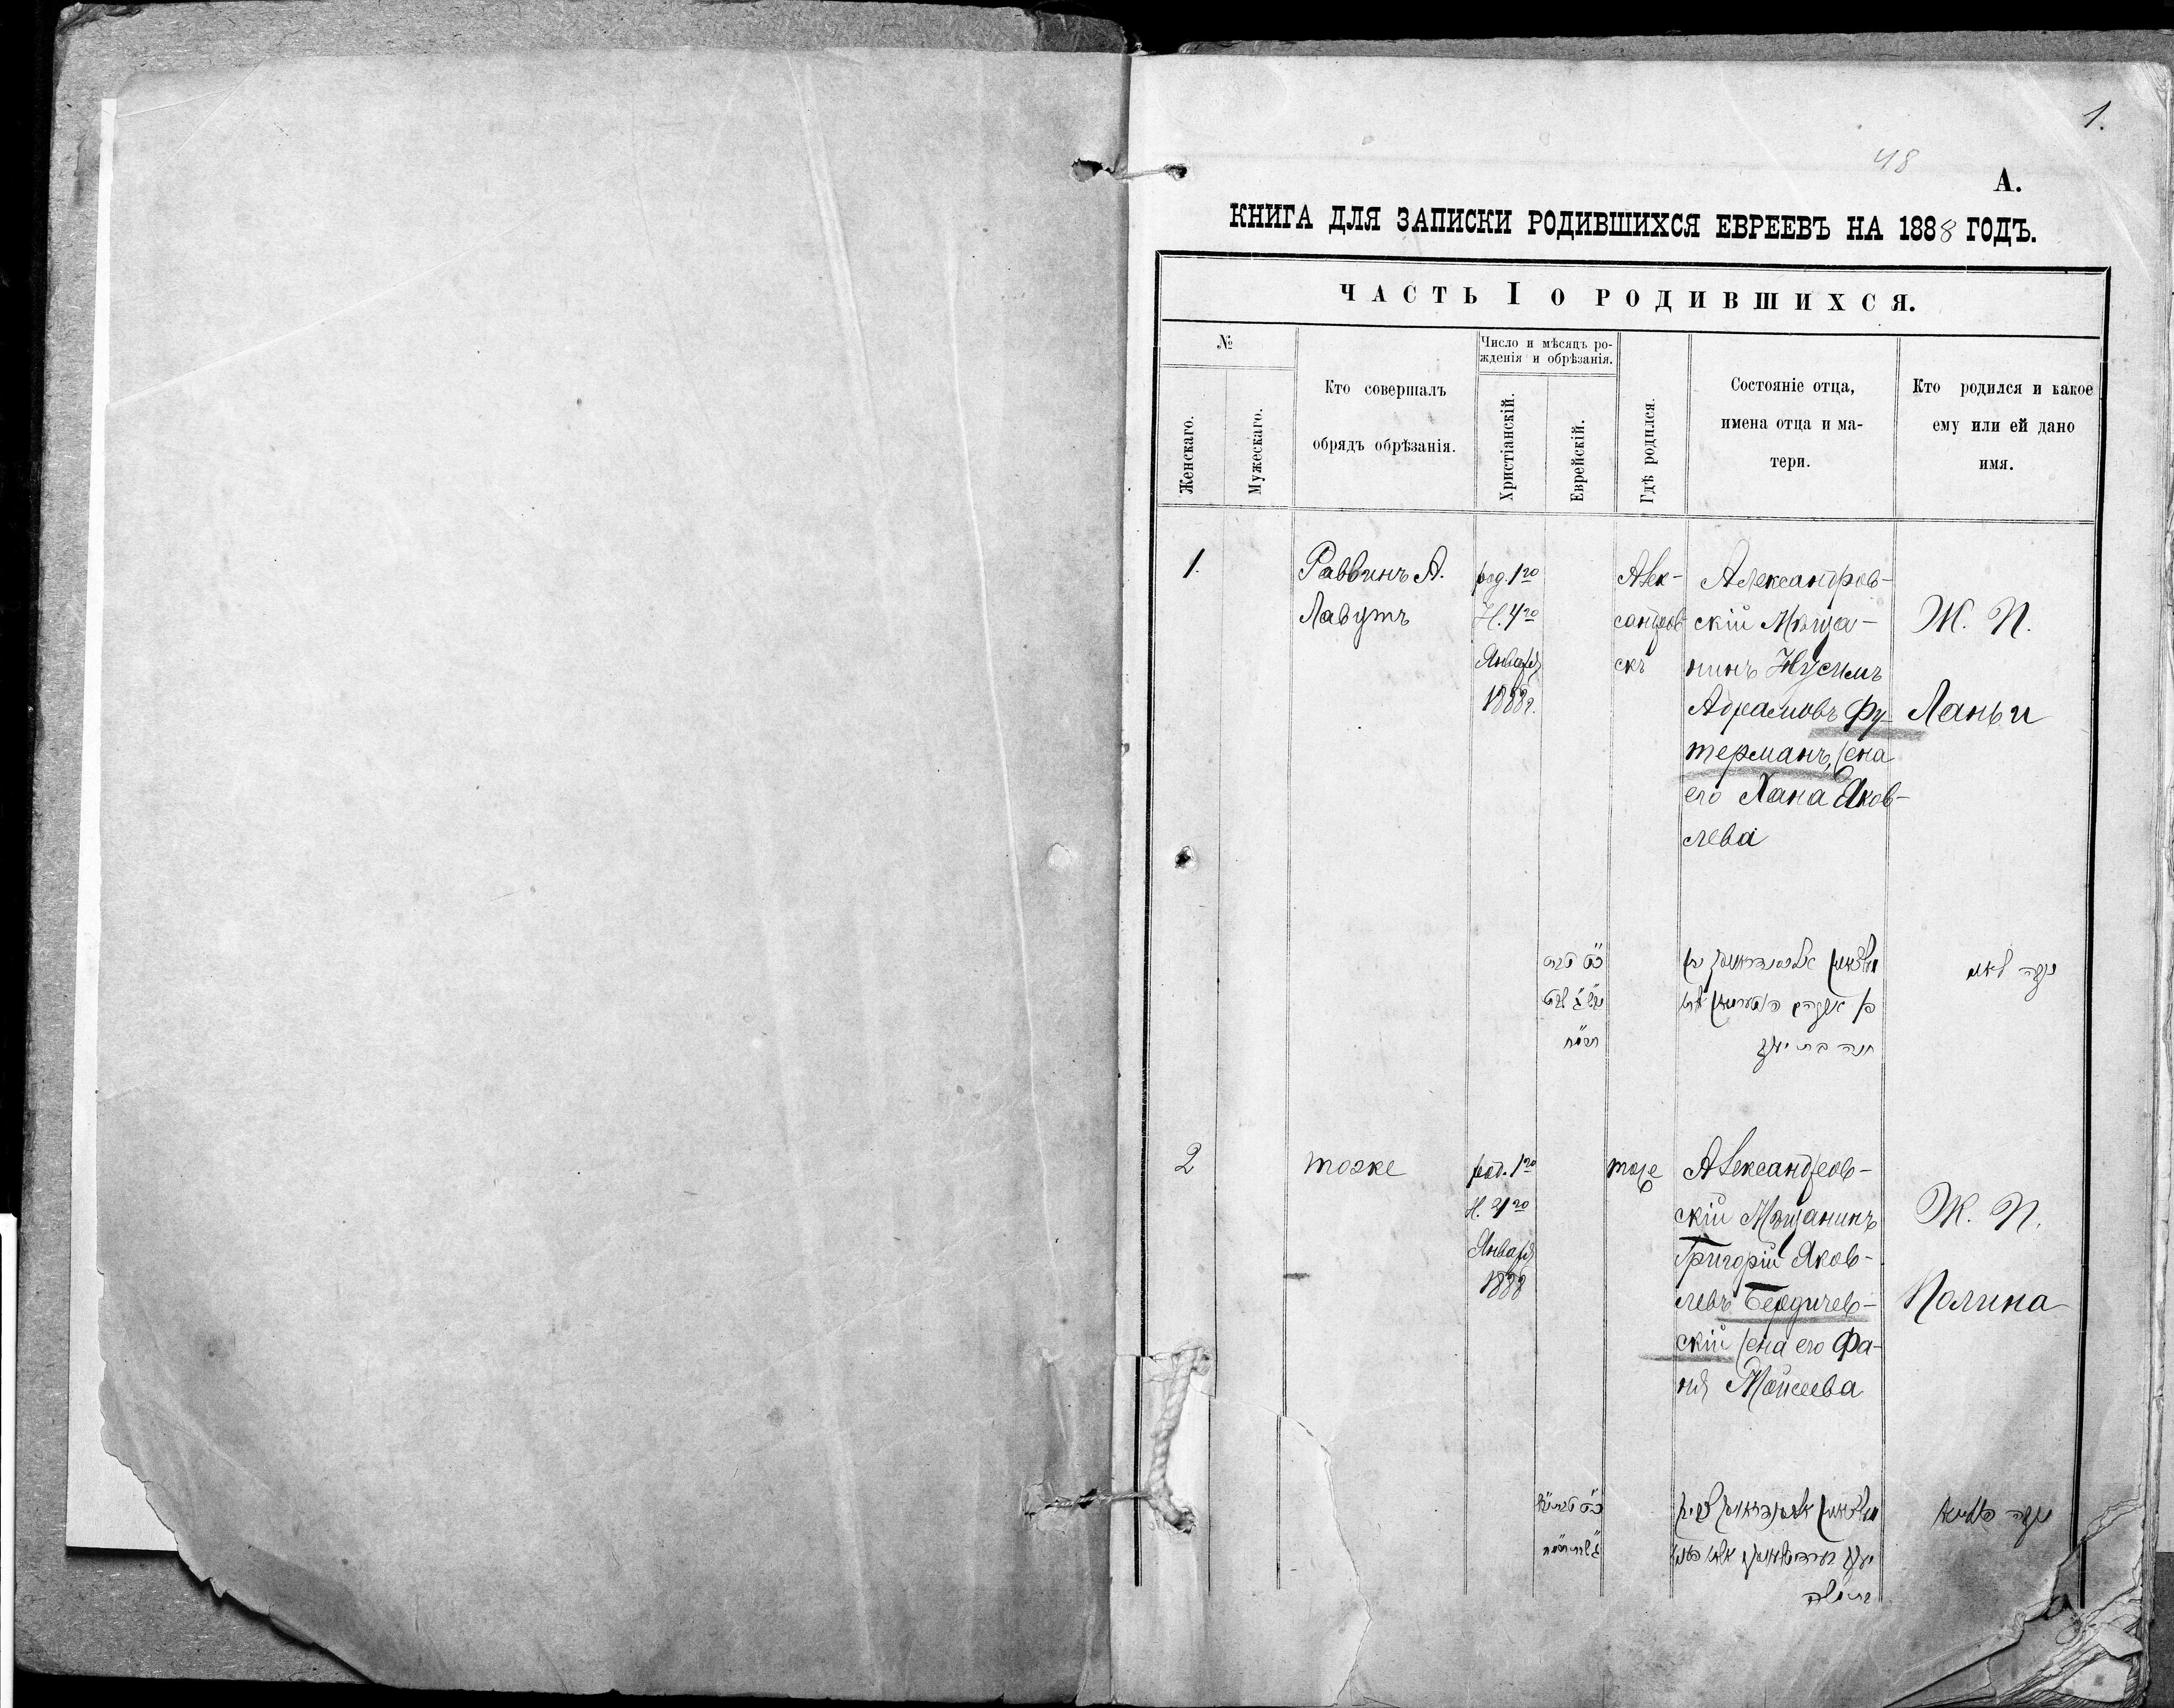 1.
48
А.
КНИГА ДЛЯ ЗАПИСКИ РОДИВШИХСЯ ЕВРЕЕВЪ НА 1888 ГОДЪ.
ЧАСТЬ I О РОДИВШИХСЯ.
№
Женскаго.
Мужескаго.
Кто совершалъ
обрядъ обрѣзанія.
Число и мѣсяцъ ро-
жденія и обрѣзанія.
Христіанскій.
Еврейскій.
Гдѣ родился.
Состояніе отца,
имена отца и ма-
тери.
Кто родился и какое
ему или ей дано
имя.
1.
Раввинъ А.
Лавутъ
род. 1го
Н. 4го
Января
1888г.
Алек-
сандров
скъ
Александров-
скій Мѣща-
нинъ Нусимъ
Абрамовъ Фу-
терманъ, жена
его Хана Яков-
лева
Ж. П.
Ланьи
חנה בת יעקב
2
тоже
род. 1го
Н. 4го
Января
1888
тоже
Александров-
скій Мѣщанинъ
Григорій Яков-
левъ Бердичев-
скій жена его Фа-
ня Моисеева
Ж. П.
Полина